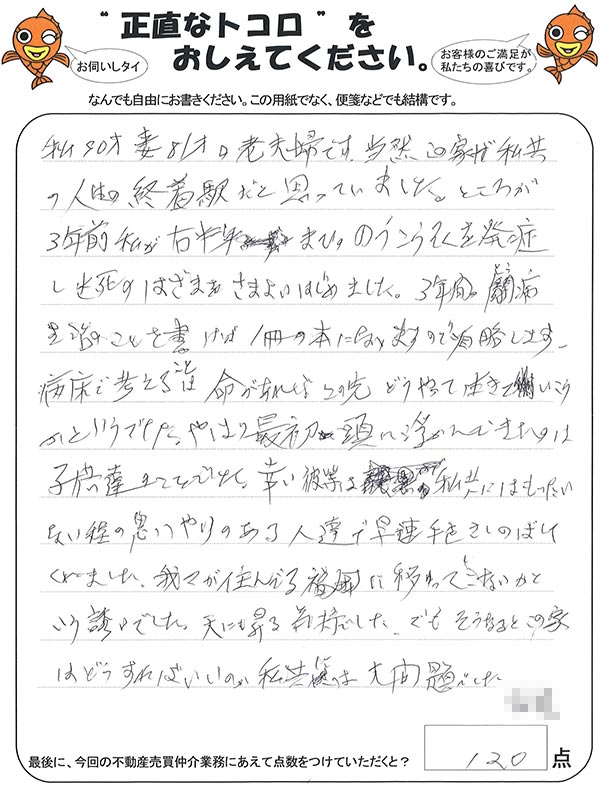 “正直なトコロ”を
おしえてください。
お伺いしタイ
お客様のご満足が
私たちの喜びです。
なんでも自由にお書きください。この用紙でなく、便箋などでも結構です。
私90才妻81才の老夫婦です。当然この家が私共
の人生の終着駅だと思っていました。ところが
3年前私が右半身まひのノウコウソクを発症
し生死のはざまをさまよいはじめました。3年間の闘病
生活のことを書けば1冊の本になりますので省略します。
病床で考えることは命があればこの先どうやって生きていこう
かというでした。やはり最初頭に浮かんできたのは
子供達のことでした。幸い彼等は私共にはもったい
ない程の思いやりのある人達で早速手をさしのばして
くれました。我々が住んでる福岡に移ってこないかと
いう誘いでした。天にも昇る気持でした。でもそうなるとこの家
はどうすればいいのか私共には大問題でした
最後に、今回の不動産売買仲介業務にあえて点数をつけていただくと？
120点